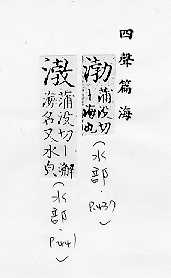 四聲篇海
渤 蒲没切
丨海也
(水部.P.437)
蒲没切丨澥
海名又水皃
(水部.P.441)